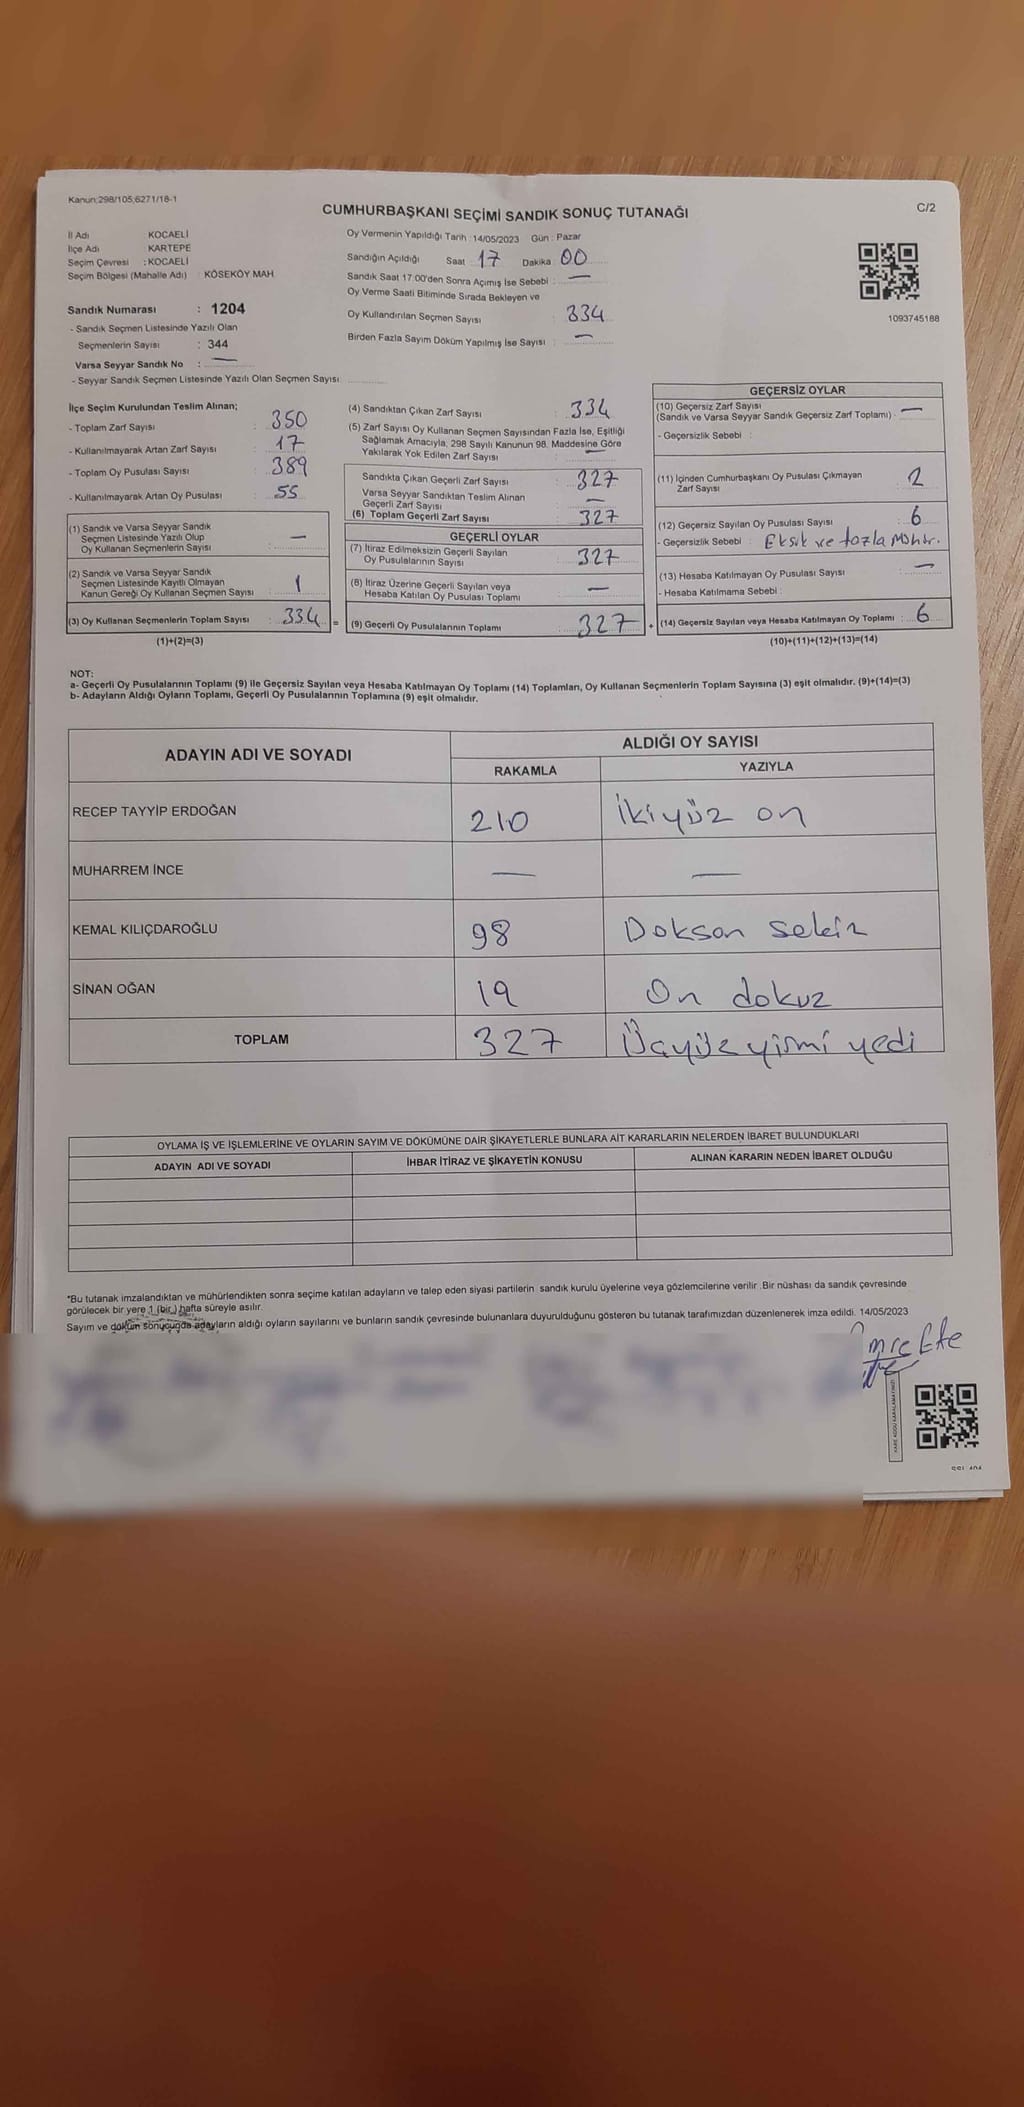 Kanun;298/105;6271/18-1
CUMHURBAŞKANI SEÇİMİ SANDIK SONUÇ TUTANAĞI
C/2
İl Adı KOCAELİ
İlçe Adı KARTEPE
Seçim Çevresi : KOCAELİ
Seçim Bölgesi (Mahalle Adı) : KÖSEKÖY MAH.
Sandık Numarası : 1204
- Sandık Seçmen Listesinde Yazılı Olan
Seçmenlerin Sayısı : 344
Varsa Seyyar Sandık No : —
- Seyyar Sandık Seçmen Listesinde Yazılı Olan Seçmen Sayısı
Oy Vermenin Yapıldığı Tarih : 14/05/2023 Gün : Pazar
Sandığın Açıldığı Saat 17 Dakika 00
Sandık Saat 17:00'den Sonra Açımış İse Sebebi : —
Oy Verme Saati Bitiminde Sırada Bekleyen ve
Oy Kullandırılan Seçmen Sayısı : 334
Birden Fazla Sayım Döküm Yapılmış İse Sayısı : —
1093745188
İlçe Seçim Kurulundan Teslim Alınan;
- Toplam Zarf Sayısı : 350
- Kullanılmayarak Artan Zarf Sayısı : 17
- Toplam Oy Pusulası Sayısı : 389
- Kullanılmayarak Artan Oy Pusulası : 55
(1) Sandık ve Varsa Seyyar Sandık
Seçmen Listesinde Yazılı Olup
Oy Kullanan Seçmenlerin Sayısı : —
(2) Sandık ve Varsa Seyyar Sandık
Seçmen Listesinde Kayıtlı Olmayan
Kanun Gereği Oy Kullanan Seçmen Sayısı : 1
(3) Oy Kullanan Seçmenlerin Toplam Sayısı : 334 =
(1)+(2)=(3)
(4) Sandıktan Çıkan Zarf Sayısı : 334
(5) Zarf Sayısı Oy Kullanan Seçmen Sayısından Fazla İse, Eşitliği
Sağlamak Amacıyla, 298 Sayılı Kanunun 98. Maddesine Göre
Yakılarak Yok Edilen Zarf Sayısı : —
Sandıkta Çıkan Geçerli Zarf Sayısı : 327
Varsa Seyyar Sandıktan Teslim Alınan
Geçerli Zarf Sayısı : —
(6) Toplam Geçerli Zarf Sayısı : 327
GEÇERLİ OYLAR
(7) İtiraz Edilmeksizin Geçerli Sayılan
Oy Pusulalarının Sayısı : 327
(8) İtiraz Üzerine Geçerli Sayılan veya
Hesaba Katılan Oy Pusulası Toplamı : —
(9) Geçerli Oy Pusulalarının Toplamı : 327 +
GEÇERSİZ OYLAR
(10) Geçersiz Zarf Sayısı
(Sandık ve Varsa Seyyar Sandık Geçersiz Zarf Toplamı) : —
- Geçersizlik Sebebi :
(11) İçinden Cumhurbaşkanı Oy Pusulası Çıkmayan
Zarf Sayısı : 2
(12) Geçersiz Sayılan Oy Pusulası Sayısı : 6
- Geçersizlik Sebebi : Eksik ve fazla Mühür.
(13) Hesaba Katılmayan Oy Pusulası Sayısı : —
- Hesaba Katılmama Sebebi :
(14) Geçersiz Sayılan veya Hesaba Katılmayan Oy Toplamı : 6
(10)+(11)+(12)+(13)=(14)
NOT:
a- Geçerli Oy Pusulalarının Toplamı (9) ile Geçersiz Sayılan veya Hesaba Katılmayan Oy Toplamı (14) Toplamları, Oy Kullanan Seçmenlerin Toplam Sayısına (3) eşit olmalıdır. (9)+(14)=(3)
b- Adayların Aldığı Oyların Toplamı, Geçerli Oy Pusulalarının Toplamına (9) eşit olmalıdır.
ADAYIN ADI VE SOYADI
ALDIĞI OY SAYISI
RAKAMLA YAZIYLA
RECEP TAYYİP ERDOĞAN 210 İkiyüz on
MUHARREM İNCE — —
KEMAL KILIÇDAROĞLU 98 Doksan sekiz
SİNAN OĞAN 19 On dokuz
TOPLAM 327 Üçyüz yirmi yedi
OYLAMA İŞ VE İŞLEMLERİNE VE OYLARIN SAYIM VE DÖKÜMÜNE DAİR ŞİKAYETLERLE BUNLARA AİT KARARLARIN NELERDEN İBARET BULUNDUKLARI
ADAYIN ADI VE SOYADI İHBAR İTİRAZ VE ŞİKAYETİN KONUSU ALINAN KARARIN NEDEN İBARET OLDUĞU
*Bu tutanak imzalandıktan ve mühürlendikten sonra seçime katılan adayların ve talep eden siyasi partilerin sandık kurulu üyelerine veya gözlemcilerine verilir. Bir nüshası da sandık çevresinde
görülecek bir yere 1 (bir ) hafta süreyle asılır.
Sayım ve döküm sonucunda adayların aldığı oyların sayılarını ve bunların sandık çevresinde bulunanlara duyurulduğunu gösteren bu tutanak tarafımızdan düzenlenerek imza edildi. 14/05/2023
KARE KODU KARALAMAYINIZ!